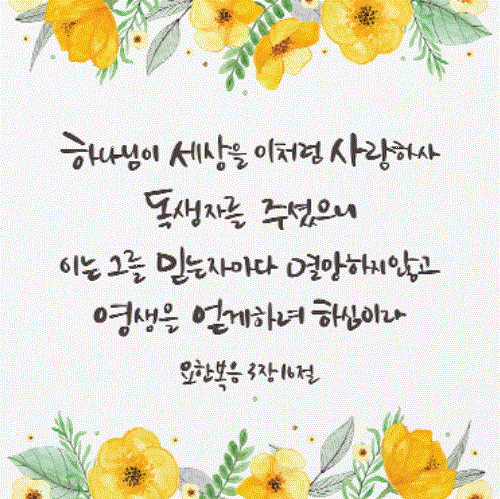 하나님이 세상을 이처럼 사랑하사
독생자를 주셨으니
이는 그를 믿는자마다 멸망하지않고
영생을 얻게하려 하심이라
요한복음 3장16절